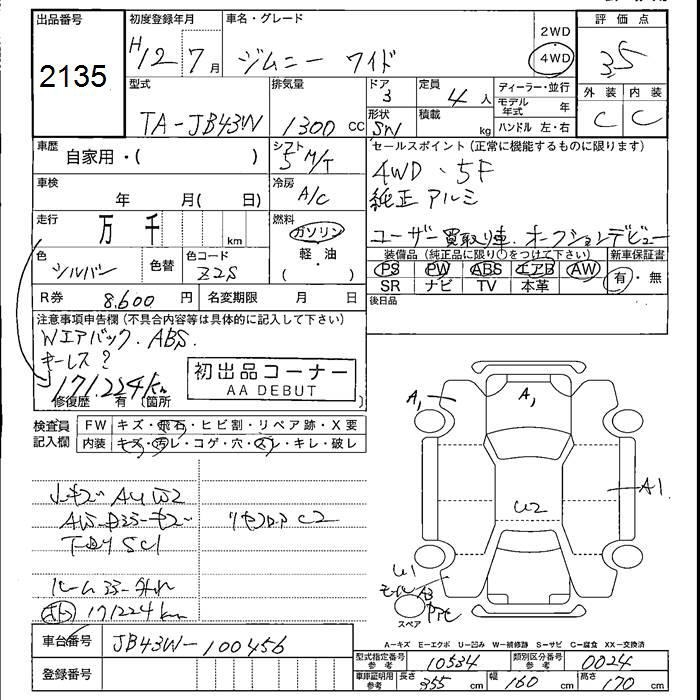 出品番号
2135
初度登録年月
H12 7月
車名・グレード
ジムニー ワイド
2WD
4WD
評価点
3.5
外装 内装
C C
型式
TA-JB43W
排気量
1300 cc
ドア
3
形状
SW
定員
4人
積載
kg
ディーラー・並行
モデル年式 年
ハンドル 左・右
車歴
自家用・( )
シフト
5 M/T
車検
年 月( 日)
冷房
A/C
走行
万 千
km
燃料
ガソリン
軽・油
( )
色
シルバー
色替
色コード
Z2S
R券 8,600 円
名変期限 月 日
セールスポイント(正常に機能するものに限ります)
4WD・5F
純正アルミ
ユーザー買取り車、オークションデビュー
装備品(純正品に限り○をつけて下さい)
新車保証書
PS PW ABS エアB AW
SR ナビ TV 本革
有・無
後日品
注意事項申告欄(不具合内容等は具体的に記入して下さい)
Wエアバック.ABS.
キーレス?
171,224km
初出品コーナー
AA DEBUT
修復歴 有(箇所 )
検査員記入欄
FW キズ・飛石・ヒビ割・リペア跡・X要
内装 キズ・汚レ・コゲ・穴・スレ・キレ・破レ
AU W2
C2
SC1
171224km
A1
A1
U2
A1
U1
スペア
A−キズ E−エクボ U−凹み W−補修跡 S−サビ C−腐食 XX−交換済
車台番号
JB43W-100456
登録番号
型式指定番号参考
10534
類別区分番号参考
0024
車庫証明用参考
長さ 355 cm
幅 160 cm
高さ 170 cm